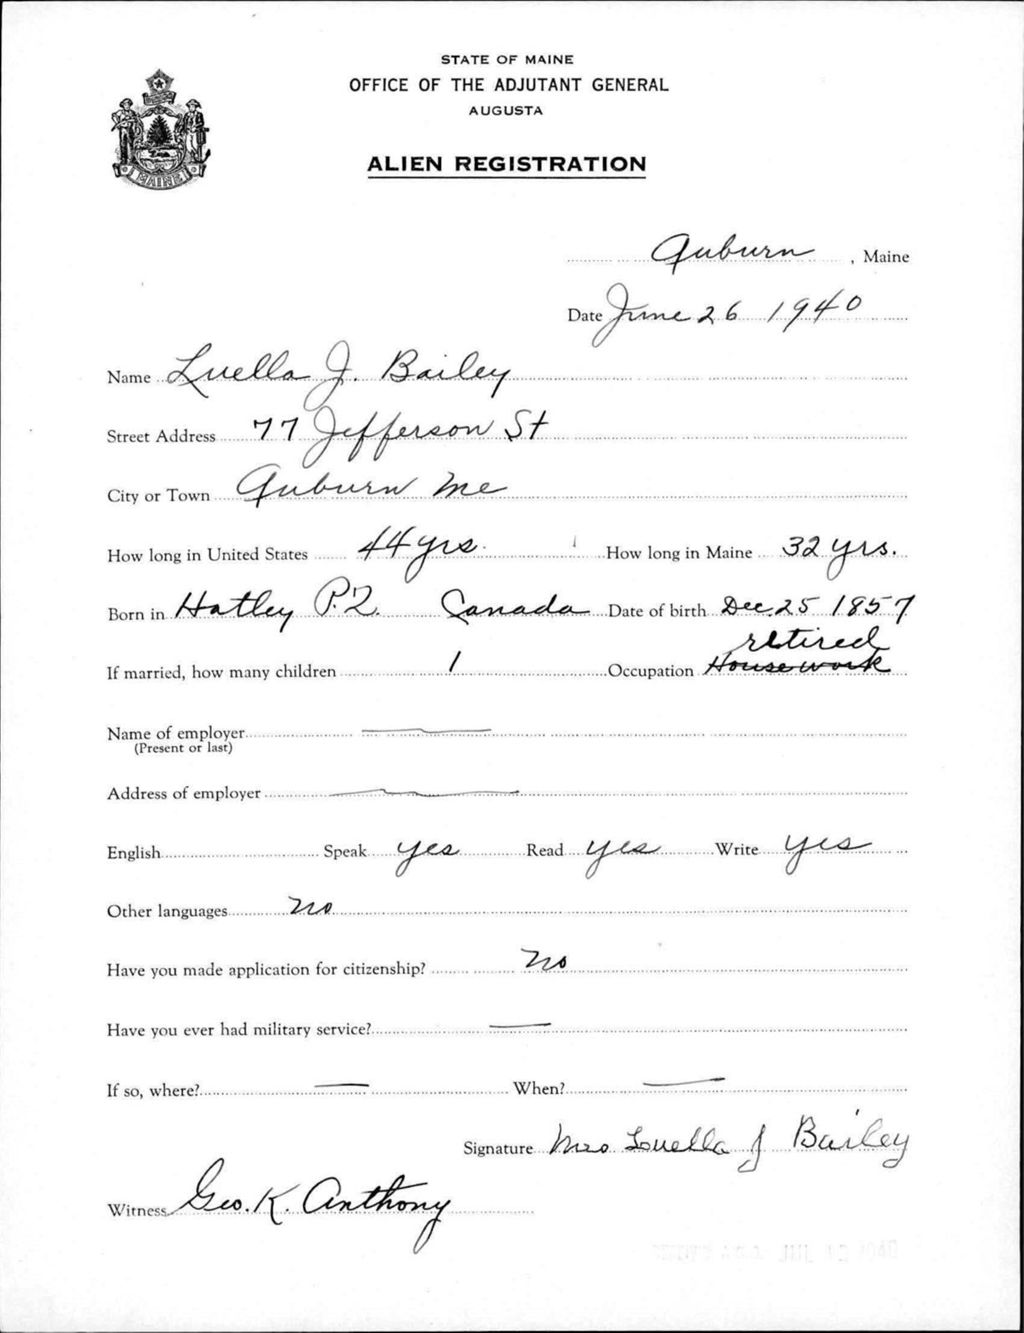 STATE OF MAINE
OFFICE OF THE ADJUTANT GENERAL
AUGUSTA
ALIEN REGISTRATION
MAINE
Auburn, Maine
Date June 26 1940
Name Luella J. Bailey
Street Address 77 Jefferson St
City or Town Auburn Me
How long in United States 44 yrs. How long in Maine 32 yrs.
Born in Hatley P.Q. Canada Date of birth Dec. 25 1857
retired
If married, how many children 1 Occupation Housework
Name of employer
(Present or last)
Address of employer
English Speak yes Read yes Write yes
Other languages no
Have you made application for citizenship? no
Have you ever had military service? —
If so, where? — When? —
Signature Mrs Louella J Bailey
Witness Geo. K. Anthony